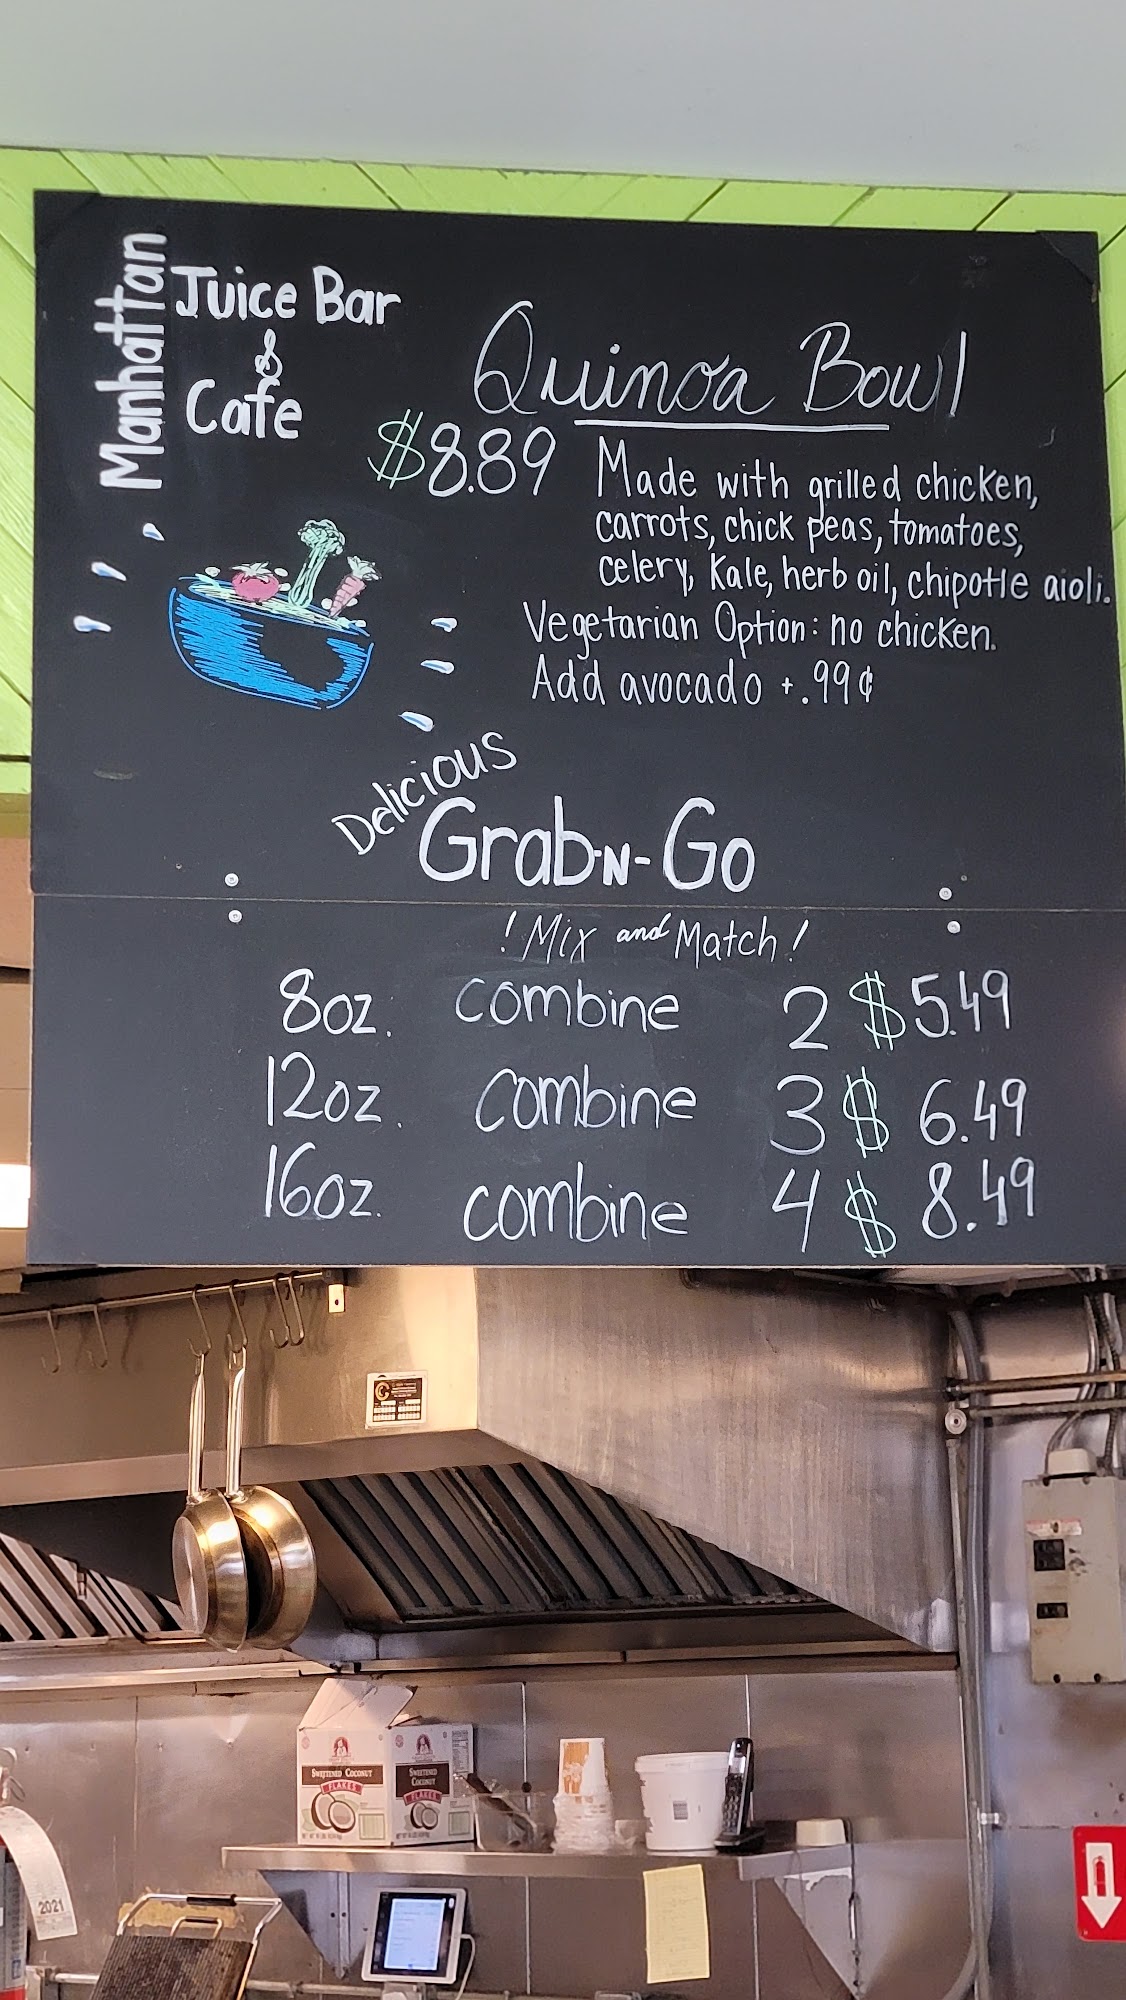 Manhattan
Juice Bar
&
Cafe
Quinoa Bowl
$8.89
Made with grilled chicken,
carrots, chick peas, tomatoes,
celery, Kale, herb oil, chipotle aioli.
Vegetarian Option: no chicken.
Add avocado +.99¢
Delicious
Grab-N-Go
!Mix and Match!
8oz. combine 2 $5.49
12oz. combine 3 $6.49
16oz. combine 4 $8.49
SWEETENED COCONUT
FLAKES
SWEETENED
COCONUT
FLAKES
2021